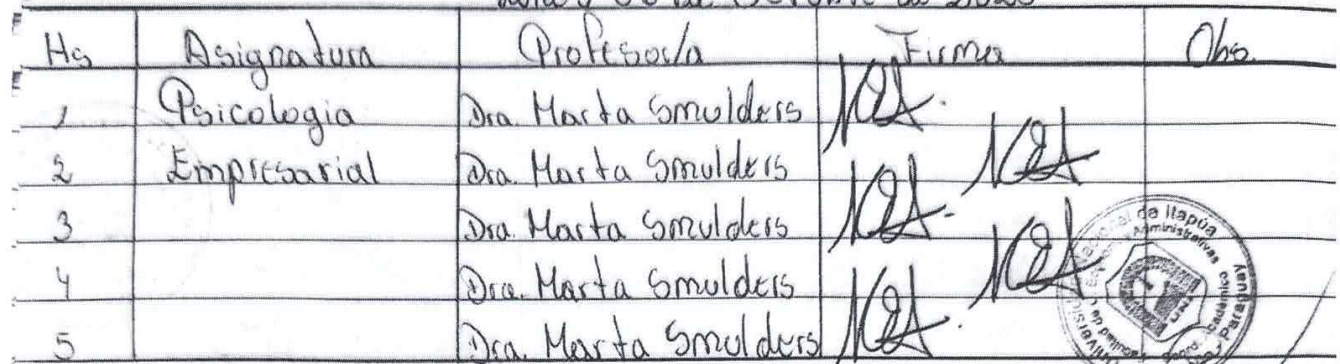 Hs Asignatura Profesor/a Firma Obs.
1 Psicologia Dra. Marta Smulders
2 Empresarial Dra. Marta Smulders
3 Dra. Marta Smulders
4 Dra. Marta Smulders
5 Dra. Marta Smulders
de Itapúa
Administrativas
Paraguay